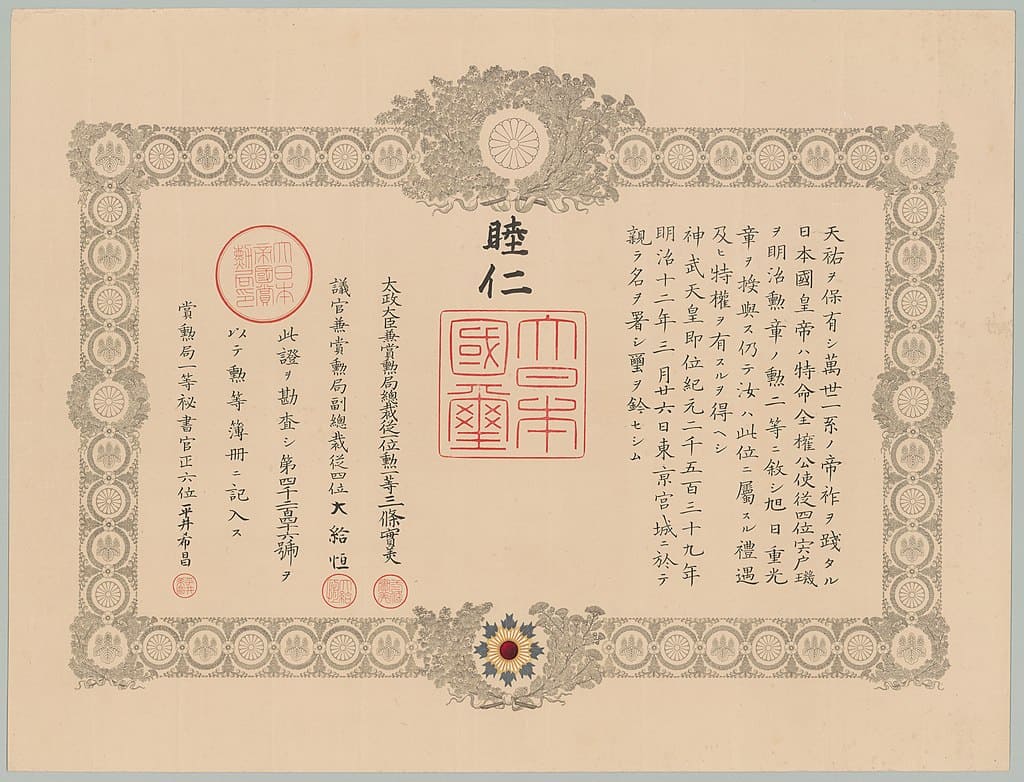 天祐ヲ保有シ萬世一系ノ帝祚ヲ踐タル
日本國皇帝ハ特命全權公使従四位宍戶璣
ヲ明治勲章ノ勲二等ニ敘シ旭日重光
章ヲ授與ス仍テ汝ハ此位ニ屬スル禮遇
及ヒ特權ヲ有スルヲ得ヘシ
神武天皇即位紀元二千五百三十九年
明治十二年三月廿六日東京宮城ニ於テ
親ラ名ヲ署シ璽ヲ鈐セシム
睦仁
大日本
國璽
太政大臣兼賞勲局總裁従一位勲一等三條實美
議官兼賞勲局副總裁従四位大給恒
大日本
帝國賞
勲局印
此證ヲ勘査シ第四千二百四十六號ヲ
以テ勲等簿冊ニ記入ス
賞勲局一等祕書官正六位平井希昌